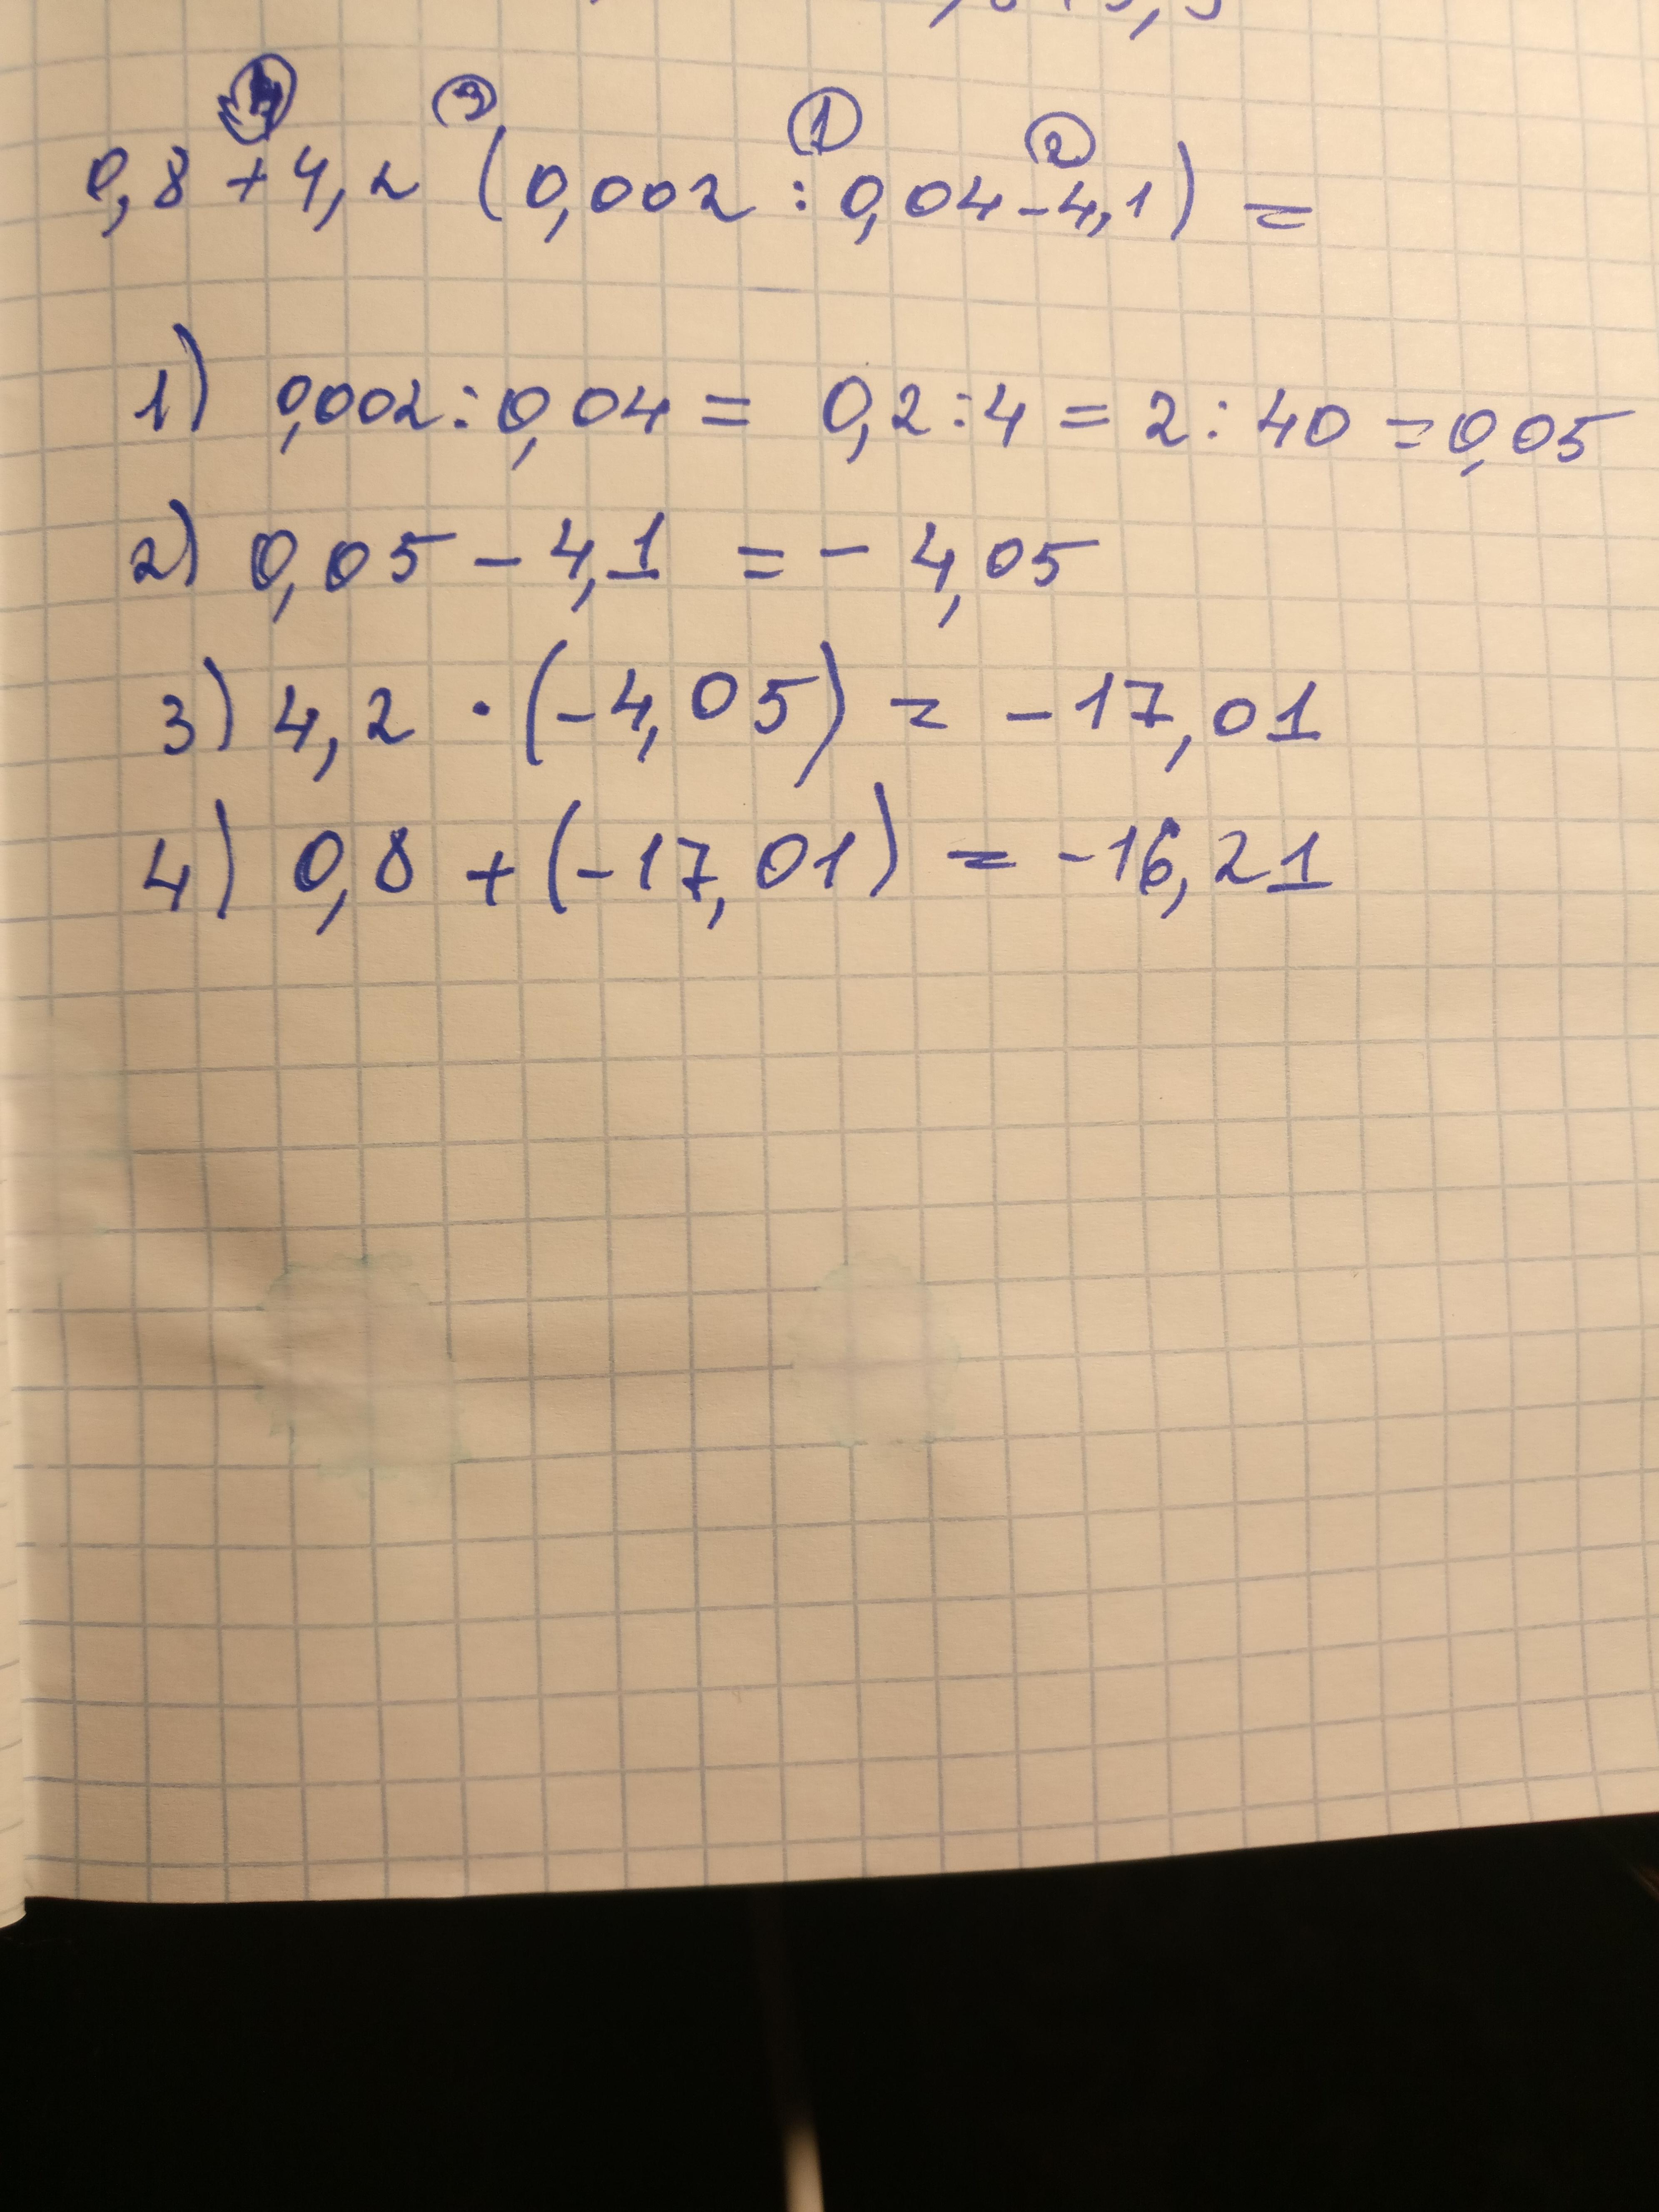 ④ ③ ① ②
0,8 + 4,2 (0,002 : 0,04 - 4,1) =
1) 0,002 : 0,04 = 0,2 : 4 = 2 : 40 = 0,05
2) 0,05 - 4,1 = - 4,05
3) 4,2 · (-4,05) = - 17,01
4) 0,8 + (-17,01) = -16,21